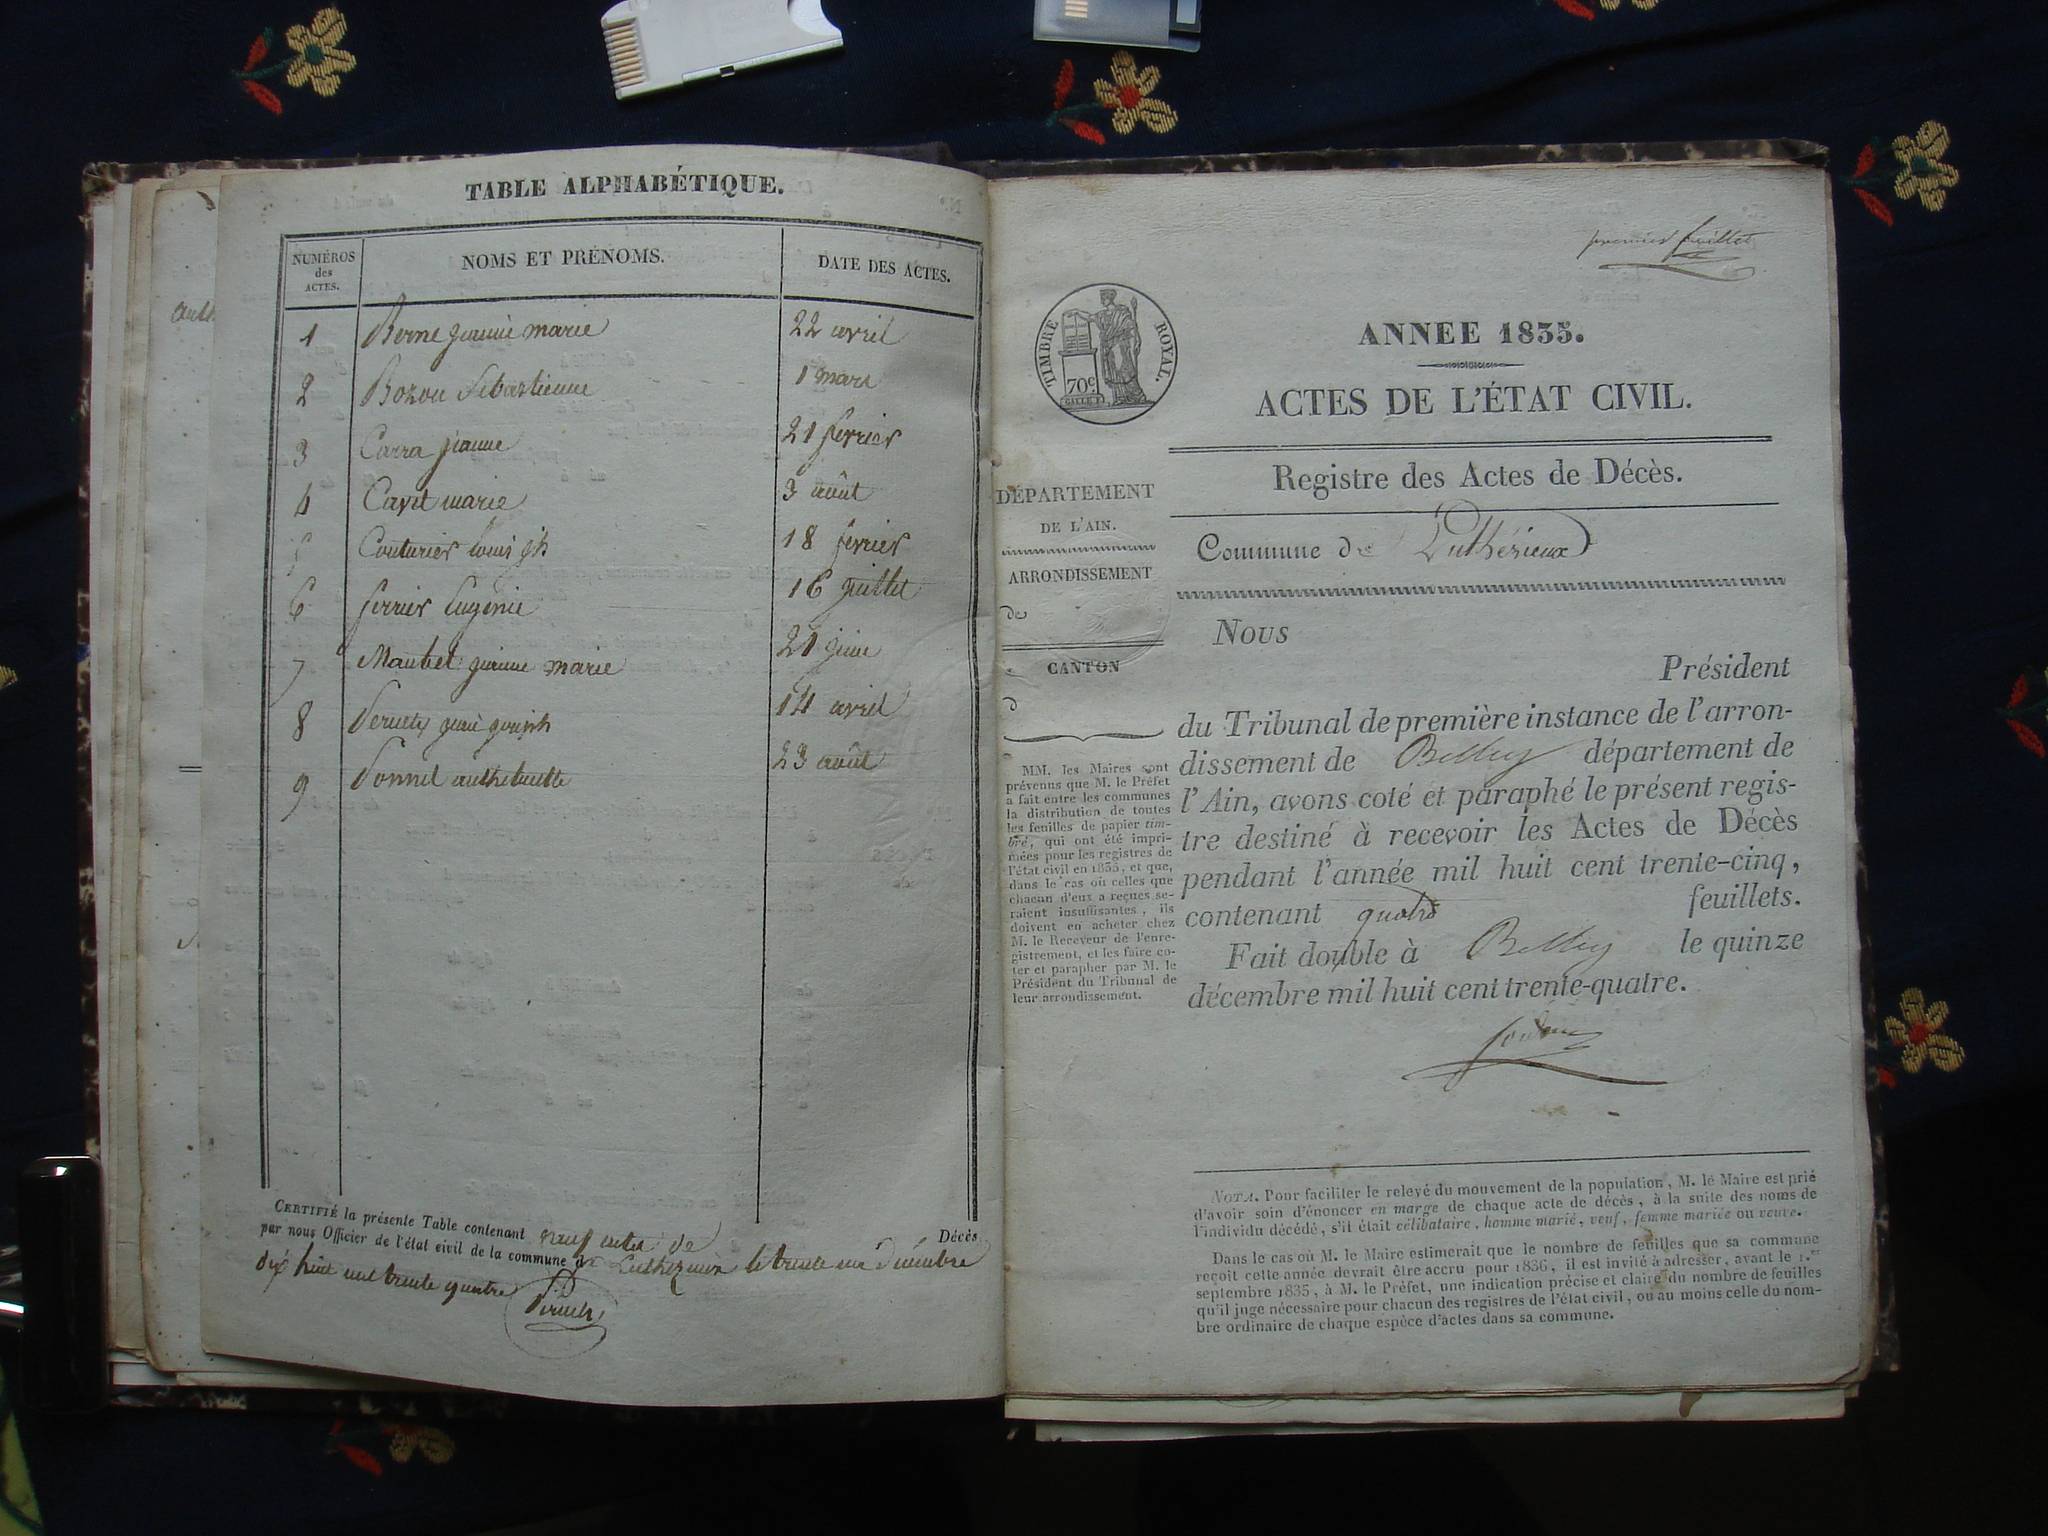 TABLE ALPHABÉTIQUE.
NUMÉROS des ACTES. NOMS ET PRÉNOMS. DATE DES ACTES.
1 Berne jeanne marie 22 avril
2 Bozon Sébastienne 1 mars
3 Carra jeanne 21 février
4 Cavet marie 3 août
5 Couturier louis jh 18 février
6 ferrier Eugénie 16 juillet
7 jeanne marie 21 juin
8 jean joseph 14 avril
9 anthelmette 23 août
CERTIFIÉ la présente Table contenant neuf actes de Décès
par nous Officier de l'état civil de la commune de le trente un décembre
dix huit cent trente quatre
premier feuillet
TIMBRE ROYAL.
70c.
ANNEE 1835.
ACTES DE L'ÉTAT CIVIL.
Registre des Actes de Décès.
Commune de Luthézieux
DÉPARTEMENT
DE L'AIN.
ARRONDISSEMENT
de
CANTON
d
MM. les Maires sont
prévenus que M. le Préfet
a fait entre les communes
la distribution de toutes
les feuilles de papier tim-
bré, qui ont été impri-
mées pour les registres de
l'état civil en 1835, et que,
dans le cas où celles que
chacun d'eux a reçues se-
raient insuffisantes, ils
doivent en acheter chez
M. le Receveur de l'enre-
gistrement, et les faire co-
ter et parapher par M. le
Président du Tribunal de
leur arrondissement.
Nous
Président
du Tribunal de première instance de l'arron-
dissement de Belley département de
l'Ain, avons coté et paraphé le présent regis-
tre destiné à recevoir les Actes de Décès
pendant l'année mil huit cent trente-cinq,
contenant quatre feuillets.
Fait double à Belley le quinze
décembre mil huit cent trente-quatre.
NOTA. Pour faciliter le relevé du mouvement de la population, M. le Maire est prié
d'avoir soin d'énoncer en marge de chaque acte de décès, à la suite des noms de
l'individu décédé, s'il était célibataire, homme marié, veuf, femme mariée ou veuve.
Dans le cas où M. le Maire estimerait que le nombre de feuilles que sa commune
reçoit cette année devrait être accru pour 1836, il est invité à adresser, avant le 1.er
septembre 1835, à M. le Préfet, une indication précise et claire du nombre de feuilles
qu'il juge nécessaire pour chacun des registres de l'état civil, ou au moins celle du nom-
bre ordinaire de chaque espèce d'actes dans sa commune.